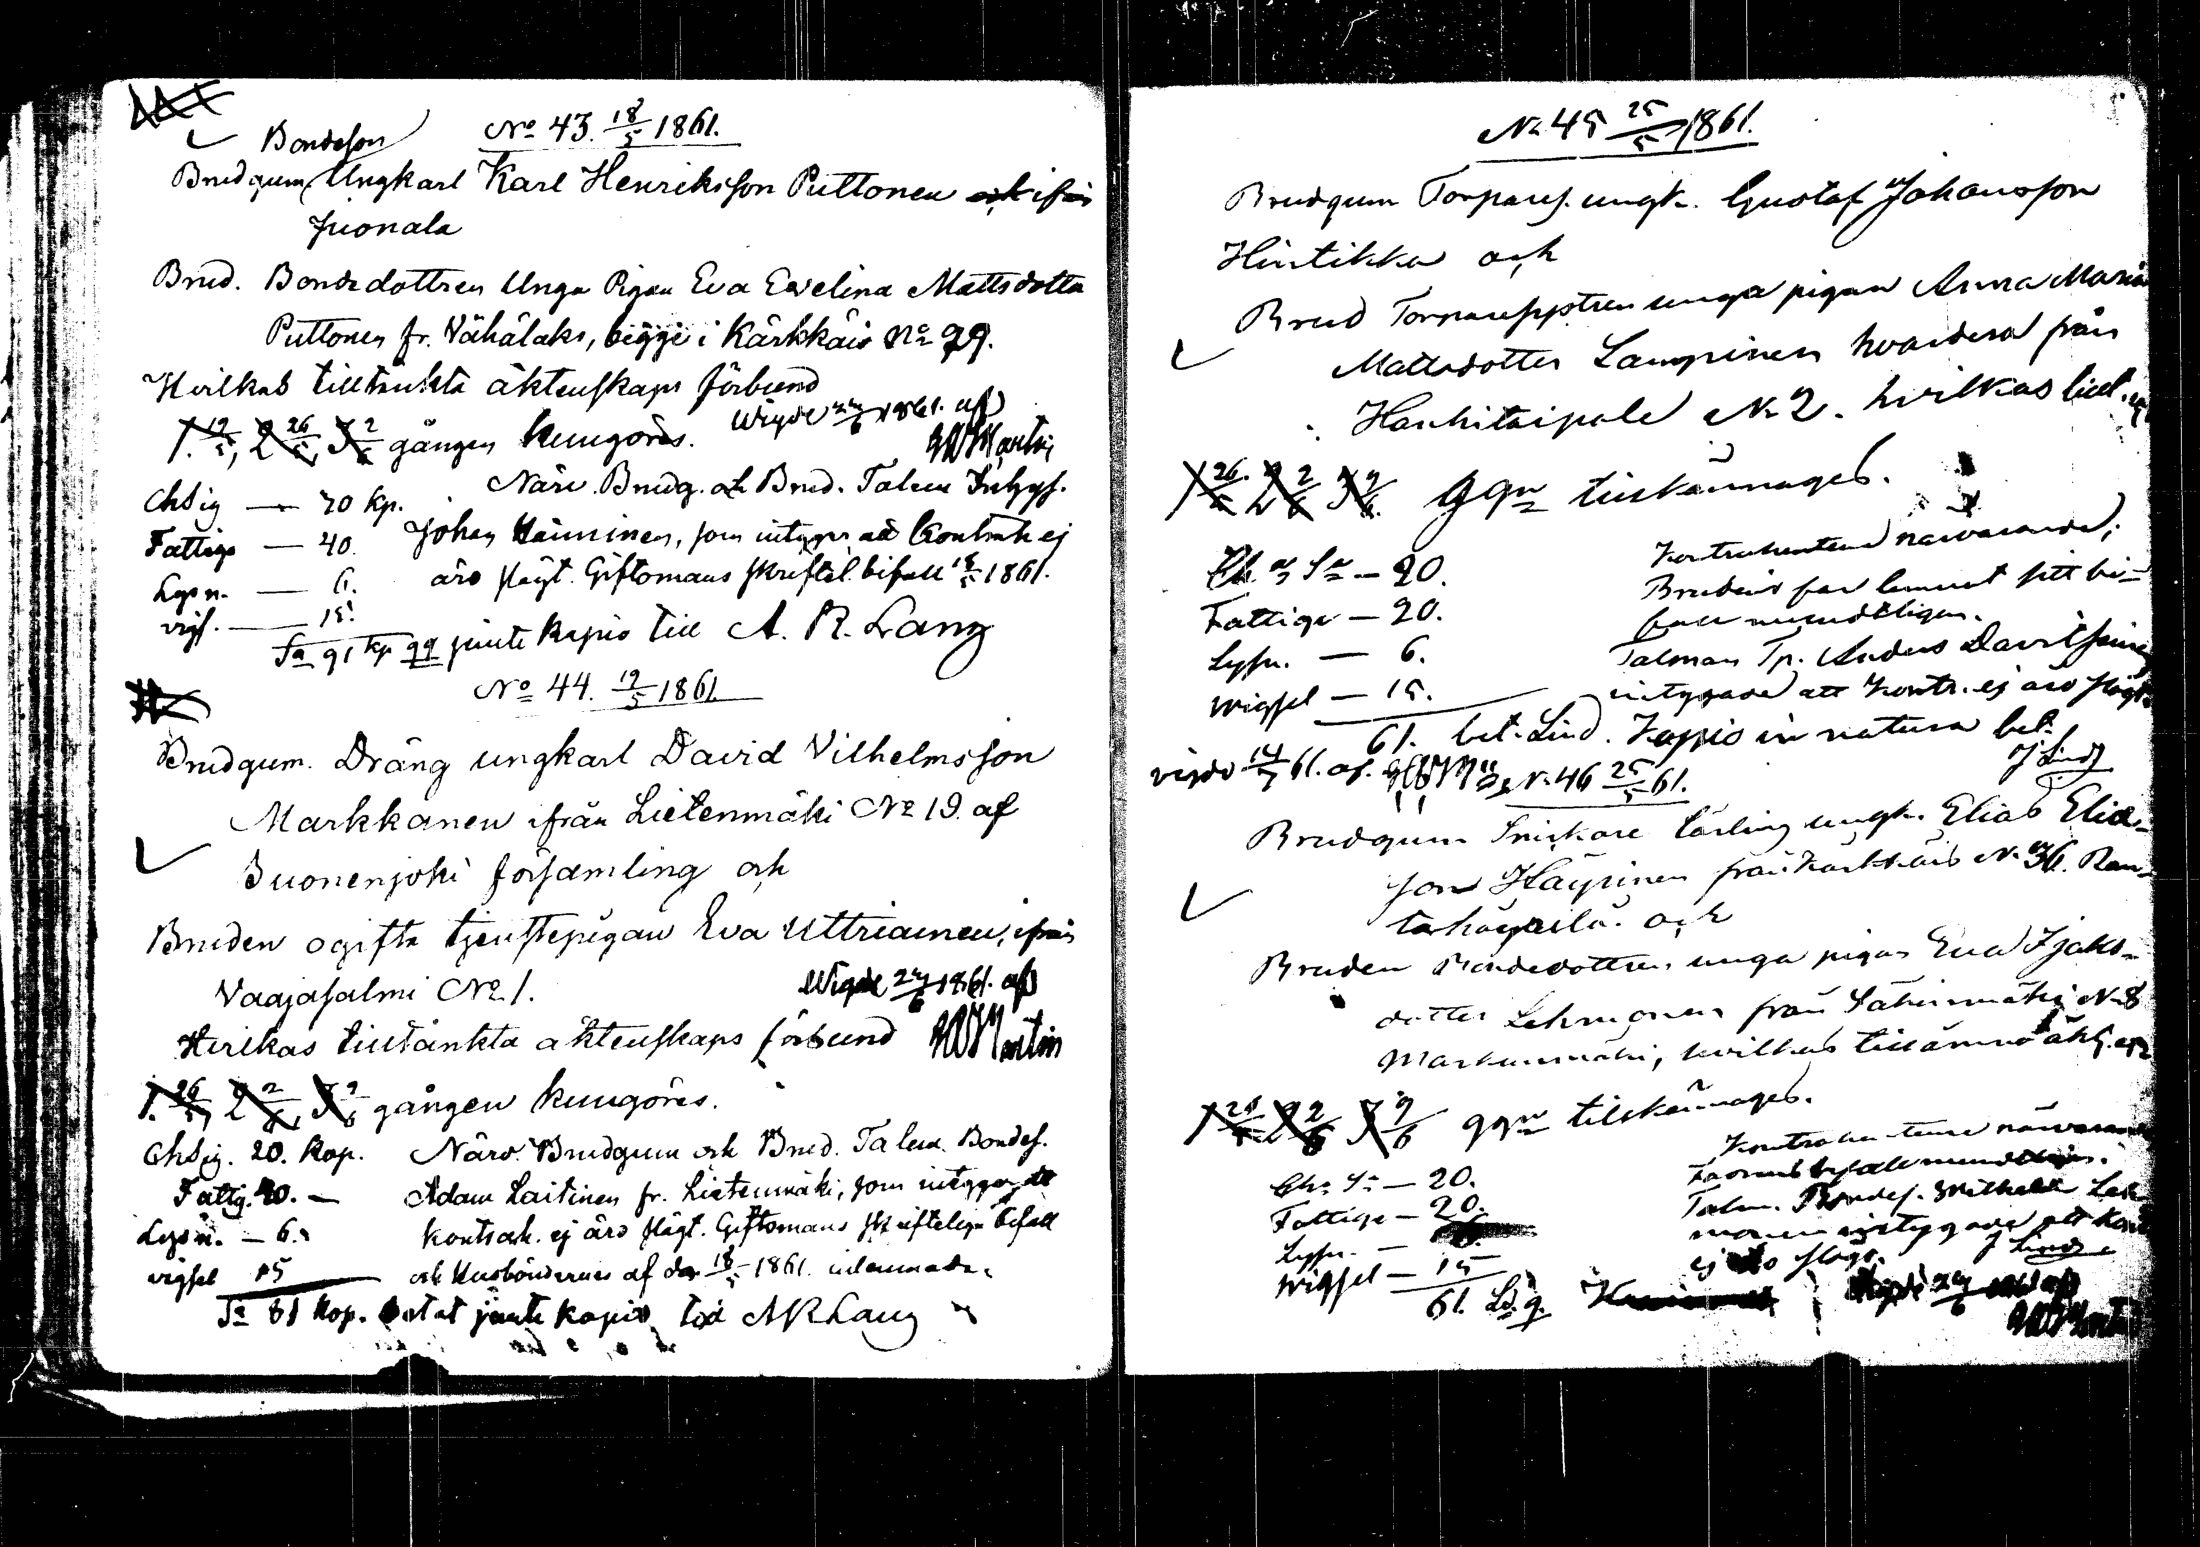 No 43. 18/5 1861.
Bondeson
Brudgum Ungkarl Karl Henriksson Puttonen ifrån
Juonala
Brud. Bondedottren Unga Pigan Eva Evelina Mattsdotter
Puttonen fr. Vähälaks, bägge i Kärkkäis No 29.
Hvilkas tilltänkta äktenskaps förbund
1. 19/5, 2 26/5, 3 2/6 gången kungöres.
Wigde 27/6 1861. af
Martin
Närv. Brudg. och Brud. Talem. Inhygs.
Johan Hänninen, som intygar att Kontrah ej
äro slägt. Giftomans skriftel. bifall 18/5 1861.
Chsig — 20 kp.
Fattiga — 40.
Lysn. — 6.
vigs. — 15.
Sa 91 kp jemte kapio till A. R. Lang
No 44. 19/5 1861
Brudgum. Dräng ungkarl David Vilhelmsson
Markkanen ifrån Lietenmäki No 19. af
Suonenjoki församling och
Bruden ogifta tjenstepigan Eva Uttriainen, ifrån
Vaajasalmi No 1.
Wigde 27/6 1861. af
Hvilkas tilltänkta äktenskaps förbund
Martin
1. 26/5, 2 2/6, 3 9/6 gången kungöres.
Chsig. 20. kop.
Fattig. 20. —
Lysn. — 6.
vigsel 15
Närv. Brudgum och Brud. Talem. Bondes.
Adam Laitinen fr. Lietenmäki, som intygar att
kontrah. ej äro slägt. Giftomans skriftliga bifall
och Husböndernes af den 18/5 1861. inlemnade.
Sa 61 kop. betat jemte kapio till A R Lang
No 45 25/5 1861.
Brudgum Torpares. ungk. Gustaf Johansson
Hintikka och
Brud Torparedottren unga pigan Anna Maria
Mattsdotter Lampinen hvardera från
Hankitaipale No 2. hvilkas
1 26/5 2 2/6 3 9/6 ggn tillkännages.
Ch. Sa — 20.
Fattiga — 20.
Lysn. — 6.
Wigsel — 15.
61. bet. Lind. Kapio in natura bet.
J Lind
Kontrahenterne närvarande;
Brudens far lemnat sitt bi-
fall mundtligen.
Talman Tp. Anders Davitsainen
intygade att kontr. ej äro slägt.
vigde 14/7 61. af.
No 46 25/5 61.
Brudgum Snickare lärling ungk. Elias Elia-
son Häyrinen från Kärkkäis No 36. Ran-
tahäyrilä. och
Bruden Bondedottren unga pigan Eva Isaks-
dotter Lehmonen från Säkinmäki No 8
Markunmäki, hvilkas tillämnade äkt.
1 26/5 2 2/6 3 9/6 ggn tillkännages.
Ch. Sa — 20.
Fattiga — 20.
Lysn. —
Wigsel — 15
61.
Kontrahenterne närvarande
Faderns bifall mundtligen.
Talm. Bondes. Wilhelm Leh-
monen intygade att kontr
ej äro slägt. J Lind